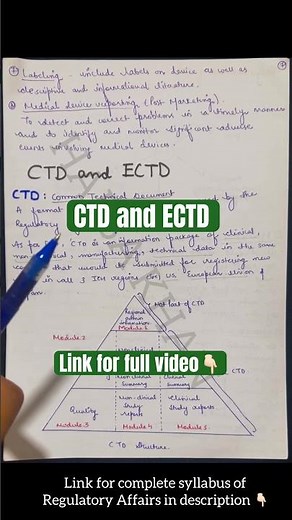 ⑦ Labeling - include labels on device as well as
descriptive and informational literature.
⑧ Medical device reporting (Post Marketing).
To detect and correct problems in a timely manner
and to identify and monitor significant adverse
events involving medical devices.
CTD and ECTD
CTD : Common Technical Document
A format by the
Regulatory
CTD and ECTD
CTD is an information package of clinical,
manufacturing, technical data in the same
that would be submitted for registering new
in all 3 ICH regions US, European Union &
Japan.
Not Part of CTD
Regional
admin
information
Module 1
Module 2
Link for full video👇🏻
CTD
Non-clinical
Summary
Clinical
Summary
Quality
Non-clinical
Study
reports
Clinical
Study reports
Module 3
Module 4
Module 5
CTD Structure.
Link for complete syllabus of
Regulatory Affairs in description 👇🏻